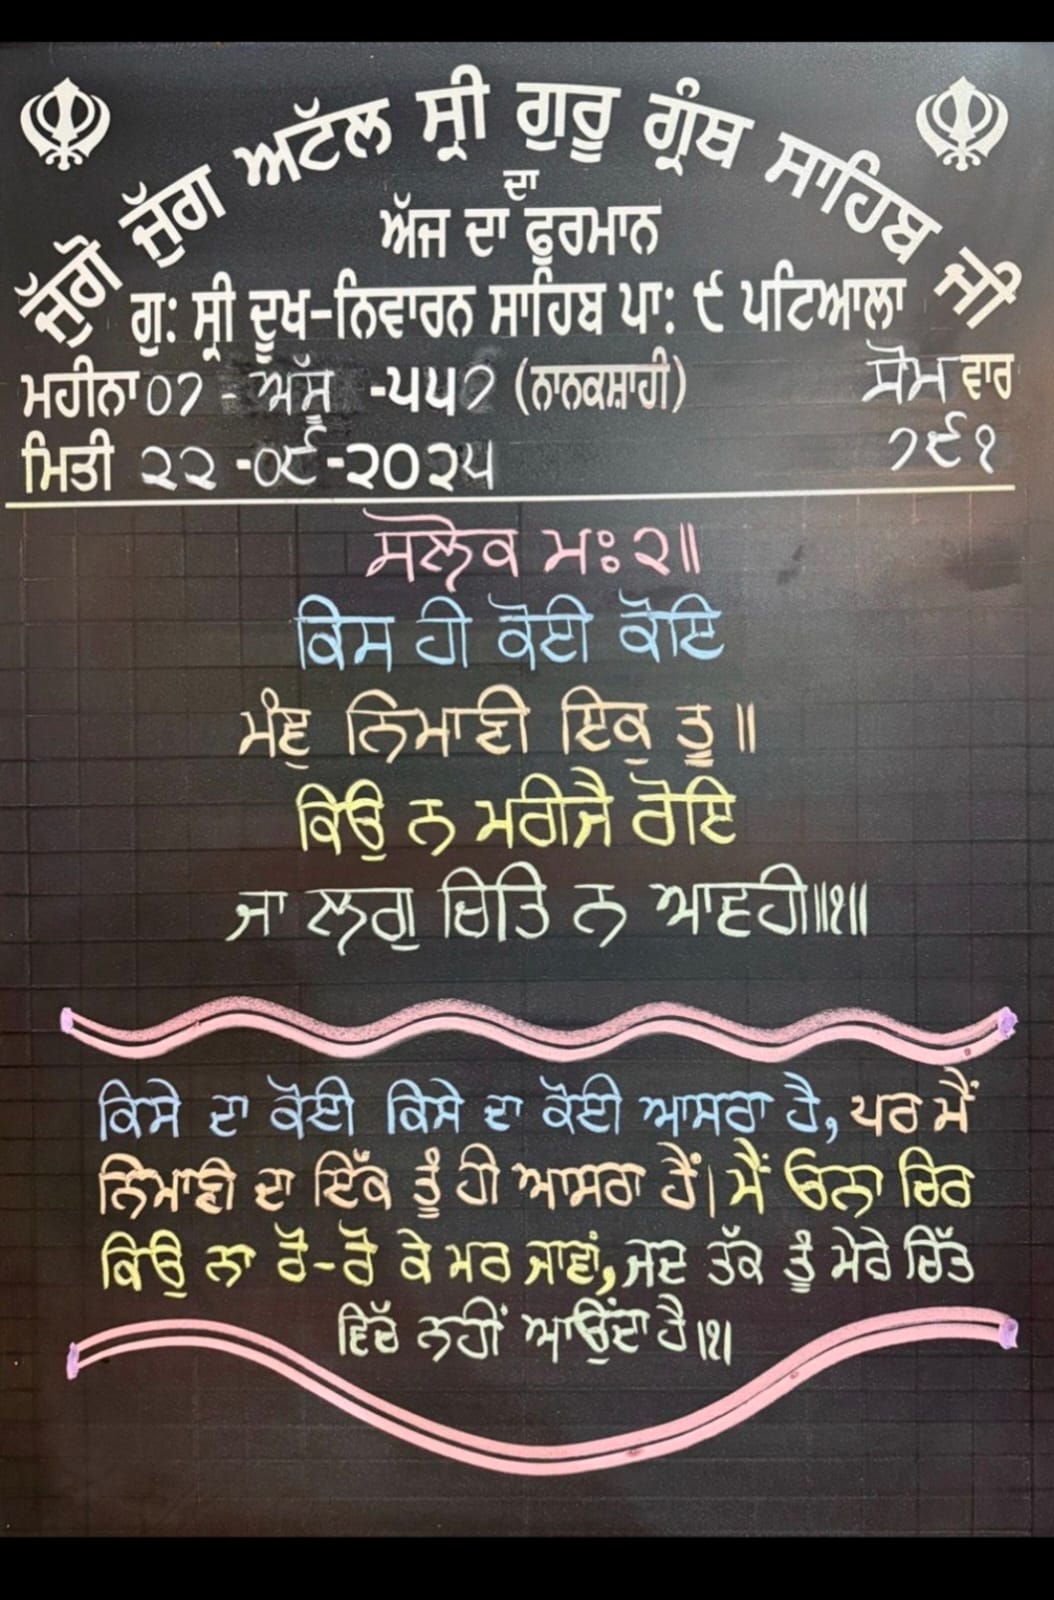 ਜੁੱਗੋ ਜੁੱਗ ਅਟੱਲ ਸ੍ਰੀ ਗੁਰੂ ਗ੍ਰੰਥ ਸਾਹਿਬ ਜੀ
ਦਾ
ਅੱਜ ਦਾ ਫੂਰਮਾਨ
ਗੁ: ਸ੍ਰੀ ਦੂਖ-ਨਿਵਾਰਨ ਸਾਹਿਬ ਪਾ: ੯ ਪਟਿਆਲਾ
ਮਹੀਨਾ 07 - ਅੱਸੂ -੫੫੭ (ਨਾਨਕਸ਼ਾਹੀ) ਸੋਮ ਵਾਰ
ਮਿਤੀ ੨੨ -੦੯-੨੦੨੫ ੭੯੧
ਸਲੋਕ ਮਃ ੨॥
ਕਿਸ ਹੀ ਕੋਈ ਕੋਇ
ਮੰਞੁ ਨਿਮਾਣੀ ਇਕੁ ਤੂ॥
ਕਿਉ ਨ ਮਰੀਜੈ ਰੋਇ
ਜਾ ਲਗੁ ਚਿਤਿ ਨ ਆਵਹੀ॥੧॥
ਕਿਸੇ ਦਾ ਕੋਈ ਕਿਸੇ ਦਾ ਕੋਈ ਆਸਰਾ ਹੈ, ਪਰ ਮੈਂ
ਨਿਮਾਣੀ ਦਾ ਇੱਕ ਤੂੰ ਹੀ ਆਸਰਾ ਹੈਂ। ਮੈਂ ਓਨਾ ਚਿਰ
ਕਿਉਂ ਨਾ ਰੋ-ਰੋ ਕੇ ਮਰ ਜਾਵਾਂ, ਜਦ ਤੱਕ ਤੂੰ ਮੇਰੇ ਚਿੱਤ
ਵਿੱਚ ਨਹੀਂ ਆਉਂਦਾ ਹੈ।੧।